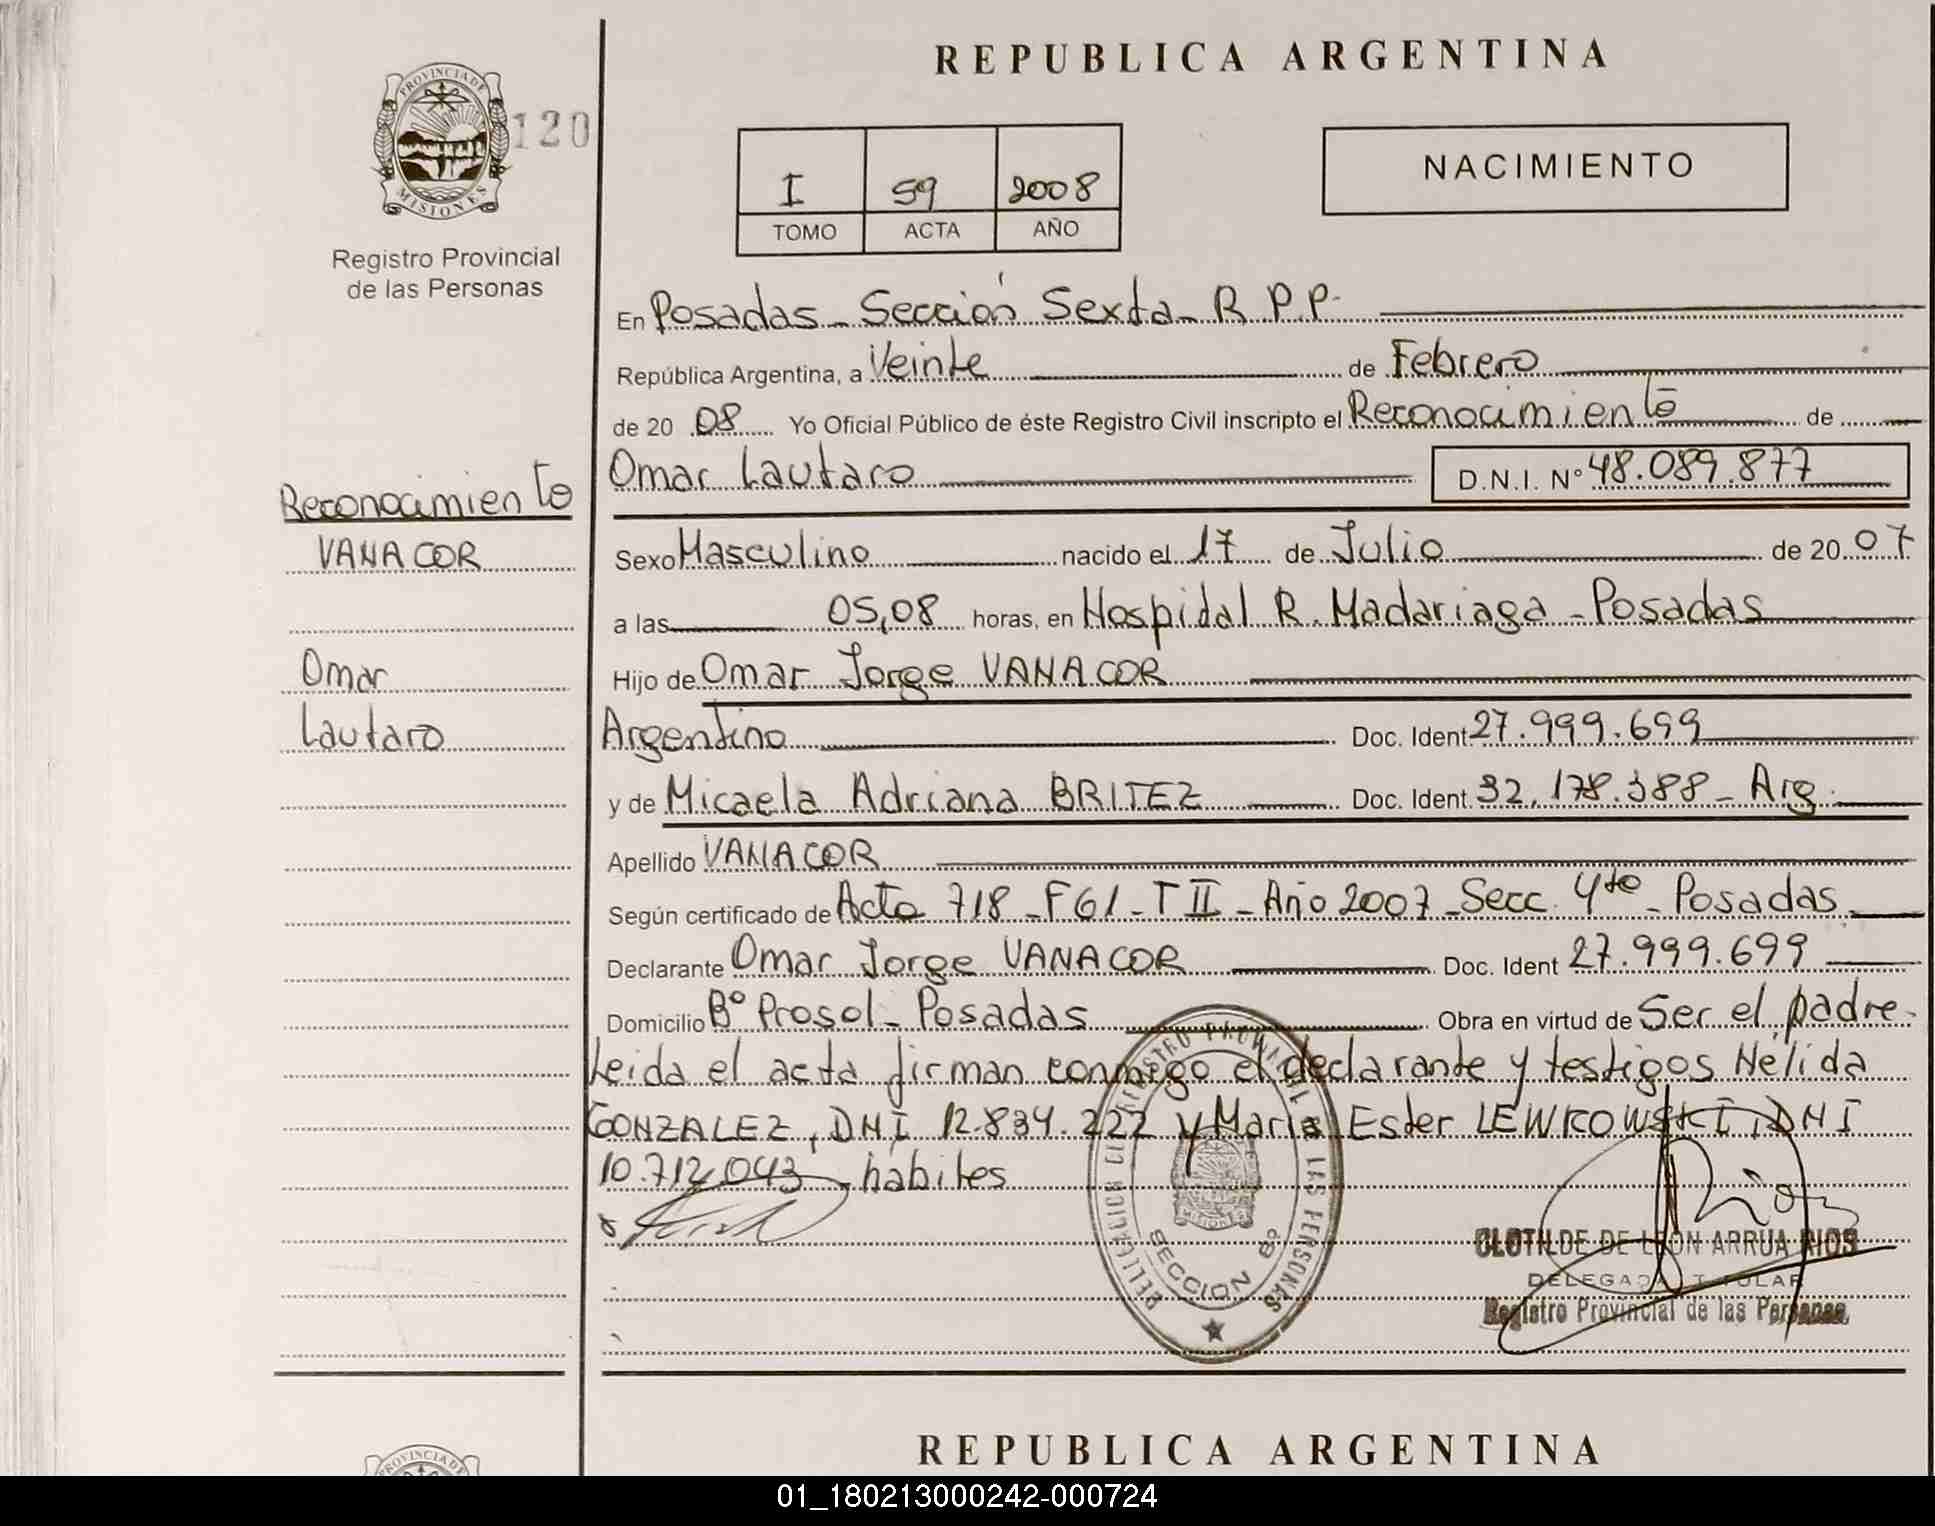 REPUBLICA ARGENTINA
PROVINCIA DE
MISIONES
120
Registro Provincial
de las Personas
I 59 2008
TOMO ACTA AÑO
NACIMIENTO
En Posadas - Sección Sexta - R P.P.
República Argentina, a Veinte de Febrero
de 20 08 Yo Oficial Público de éste Registro Civil inscripto el Reconocimiento de
Omar Lautaro D.N.I. Nº 48.089.877
Reconocimiento
VANACOR
Omar
Lautaro
Sexo Masculino nacido el 17 de Julio de 20 07
a las 05,08 horas, en Hospital R. Madariaga - Posadas
Hijo de Omar Jorge VANACOR
Argentino Doc. Ident. 27.999.699
y de Micaela Adriana BRITEZ Doc. Ident. 32.178.388 - Arg.
Apellido VANACOR
Según certificado de Acta 718 - F 61 - T II - Año 2007 - Secc. 4to - Posadas
Declarante Omar Jorge VANACOR Doc. Ident 27.999.699
Domicilio Bº Prosol - Posadas Obra en virtud de Ser el padre.
Leida el acta firman conmigo el declarante y testigos Nélida
GONZALEZ, DNI 12.834.222 y Maria Ester LEWKOWSKI, DNI
10.712.043 - hábiles
REGISTRO PROVINCIAL DE LAS PERSONAS
MISIONES
SECCION 6º
CLOTILDE DE LEON ARRUA RIOS
DELEGADA TITULAR
Registro Provincial de las Personas
REPUBLICA ARGENTINA
PROVINCIA DE
01_180213000242-000724